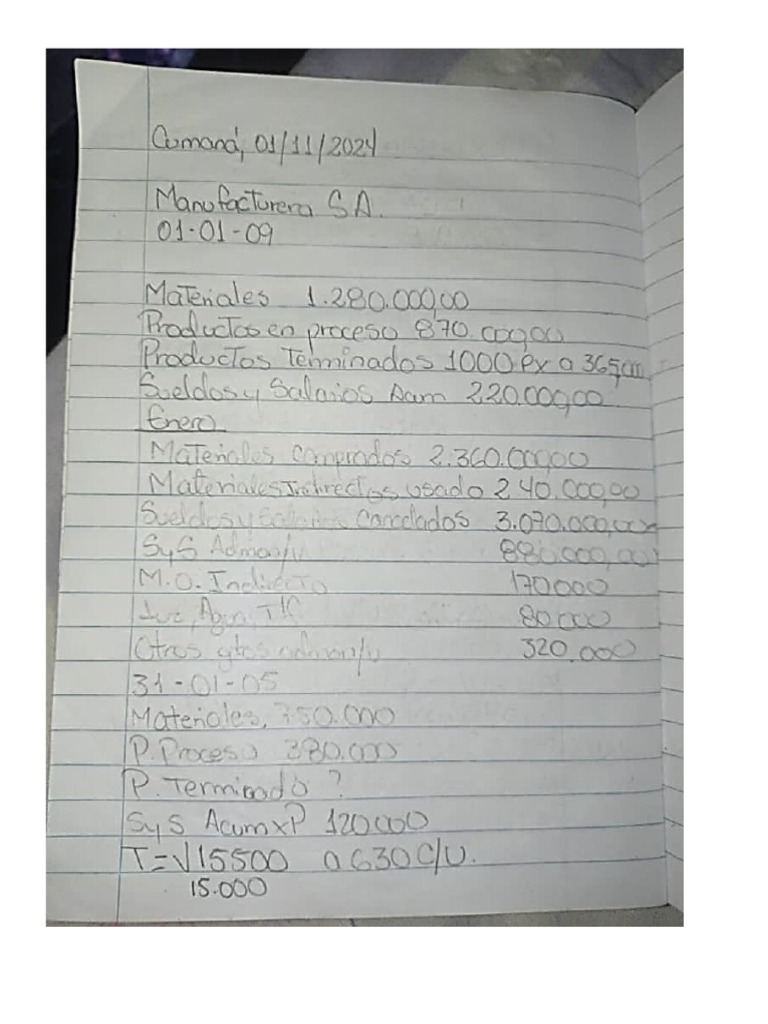 Cumaná, 01/11/2024
Manufacturera S.A.
01-01-09
Materiales 1.280.000,00
Productos en proceso 870.000,00
Productos Terminados 1000 a 365,00
Sueldos y Salarios Acum 220.000,00
Enero
Materiales comprados 2.360.000,00
Materiales Indirectos usado 240.000,00
Sueldos y Salarios Cancelados 3.070.000,00
SyS Admon/v 880.000,00
M.O. Indirecta 170000
Luz, Agua, 80.000
Otros gtos admon/v 320.000
31-01-05
Materiales, 750.000
P. Proceso 380.000
P. Terminado ?
SyS AcumxP 120000
T=√15500 a 630 C/U.
15.000